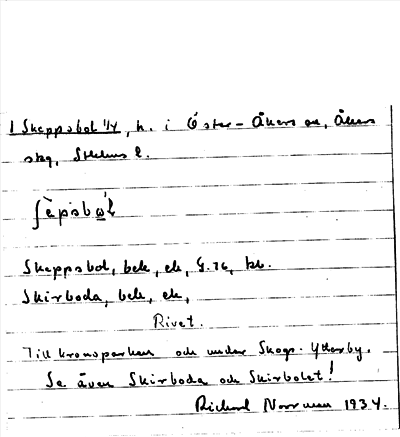 1 Skeppsbol 1/4, h. i Öster-Åkers sn, Åkers
skg, Sthlms l.
ʃèpsbὼl
Skeppsbol, bek, ek, G.76, kb.
Skirboda, bek, ek,
Rivet.
Till kronoparken och under Skogs-Ytterby.
Se även Skirboda och Skirbolet!
Richard Norrman 1934.